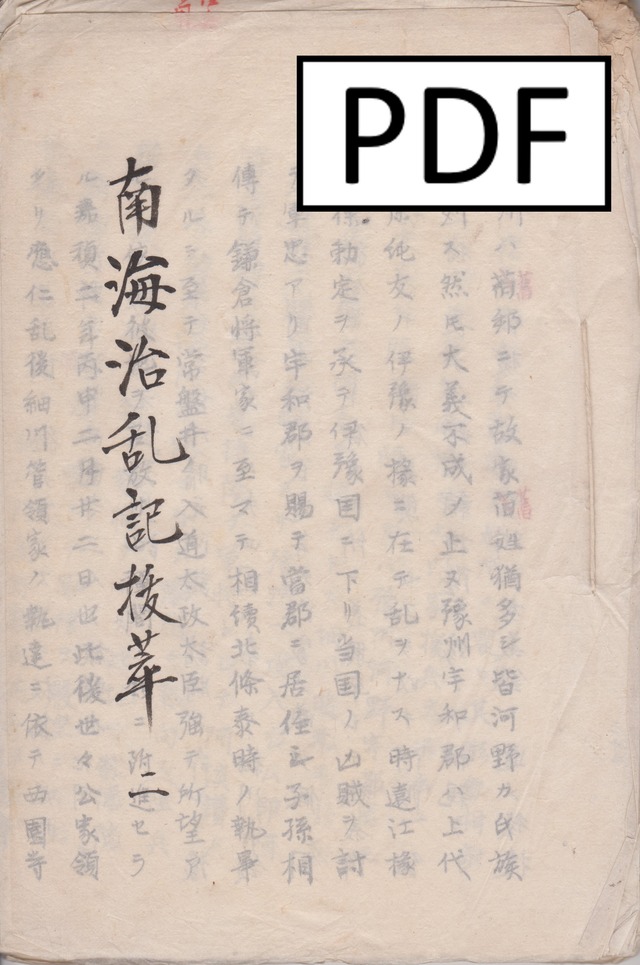 PDF
川ハ郷ニテ故家姓猶多シ皆河野カ氏族
然モ大義不成ノ止ヌ豫州宇和郡ハ上代
純友ノ伊豫ノ掾ニ在テ乱ヲナス時遠江掾
保勅定ヲ承テ伊豫国ニ下リ当国ノ凶賊ヲ討
軍忠アリ宇和郡ヲ賜テ當郡ニ居住シ子孫相
傳テ鎌倉将軍家ニ至マテ相續北條泰時ノ執事
タルニ至テ常盤井入道太政大臣強テ所望ア
南海治乱記抜萃 二
ニ附セラ
ル嘉禎二年丙申二月廿二日也此後世々公家領
タリ應仁乱後細川管領家ノ執達ニ依テ西園寺